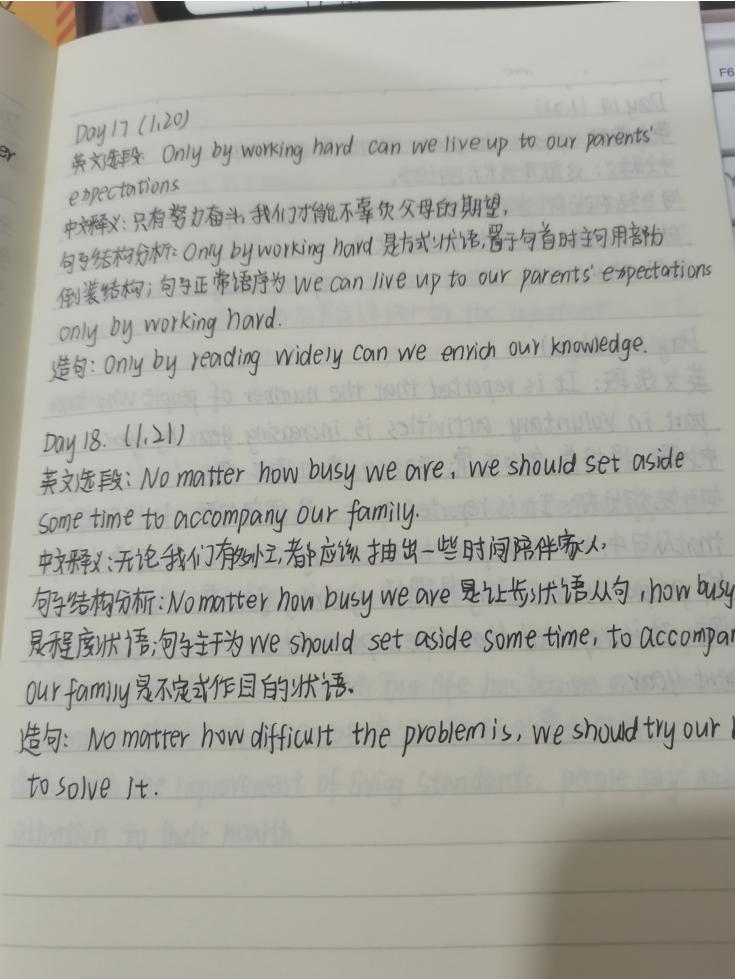 Day 17 (1.20)
英文选段: Only by working hard can we live up to our parents'
expectations
中文释义: 只有努力奋斗, 我们才能不辜负父母的期望,
句子结构分析: Only by working hard 是方式状语, 置于句首时主句用部分
倒装结构; 句子正常语序为 We can live up to our parents' expectations
only by working hard.
造句: Only by reading widely can we enrich our knowledge.
Day 18. (1.21)
英文选段: No matter how busy we are, we should set aside
some time to accompany our family.
中文释义: 无论我们有多忙, 都应该抽出一些时间陪伴家人.
句子结构分析: No matter how busy we are 是让步状语从句, how busy
是程度状语; 句子主干为 We should set aside some time, to accompan
our family 是不定式作目的状语.
造句: No matter how difficult the problem is, we should try our
to solve it.
F6
er